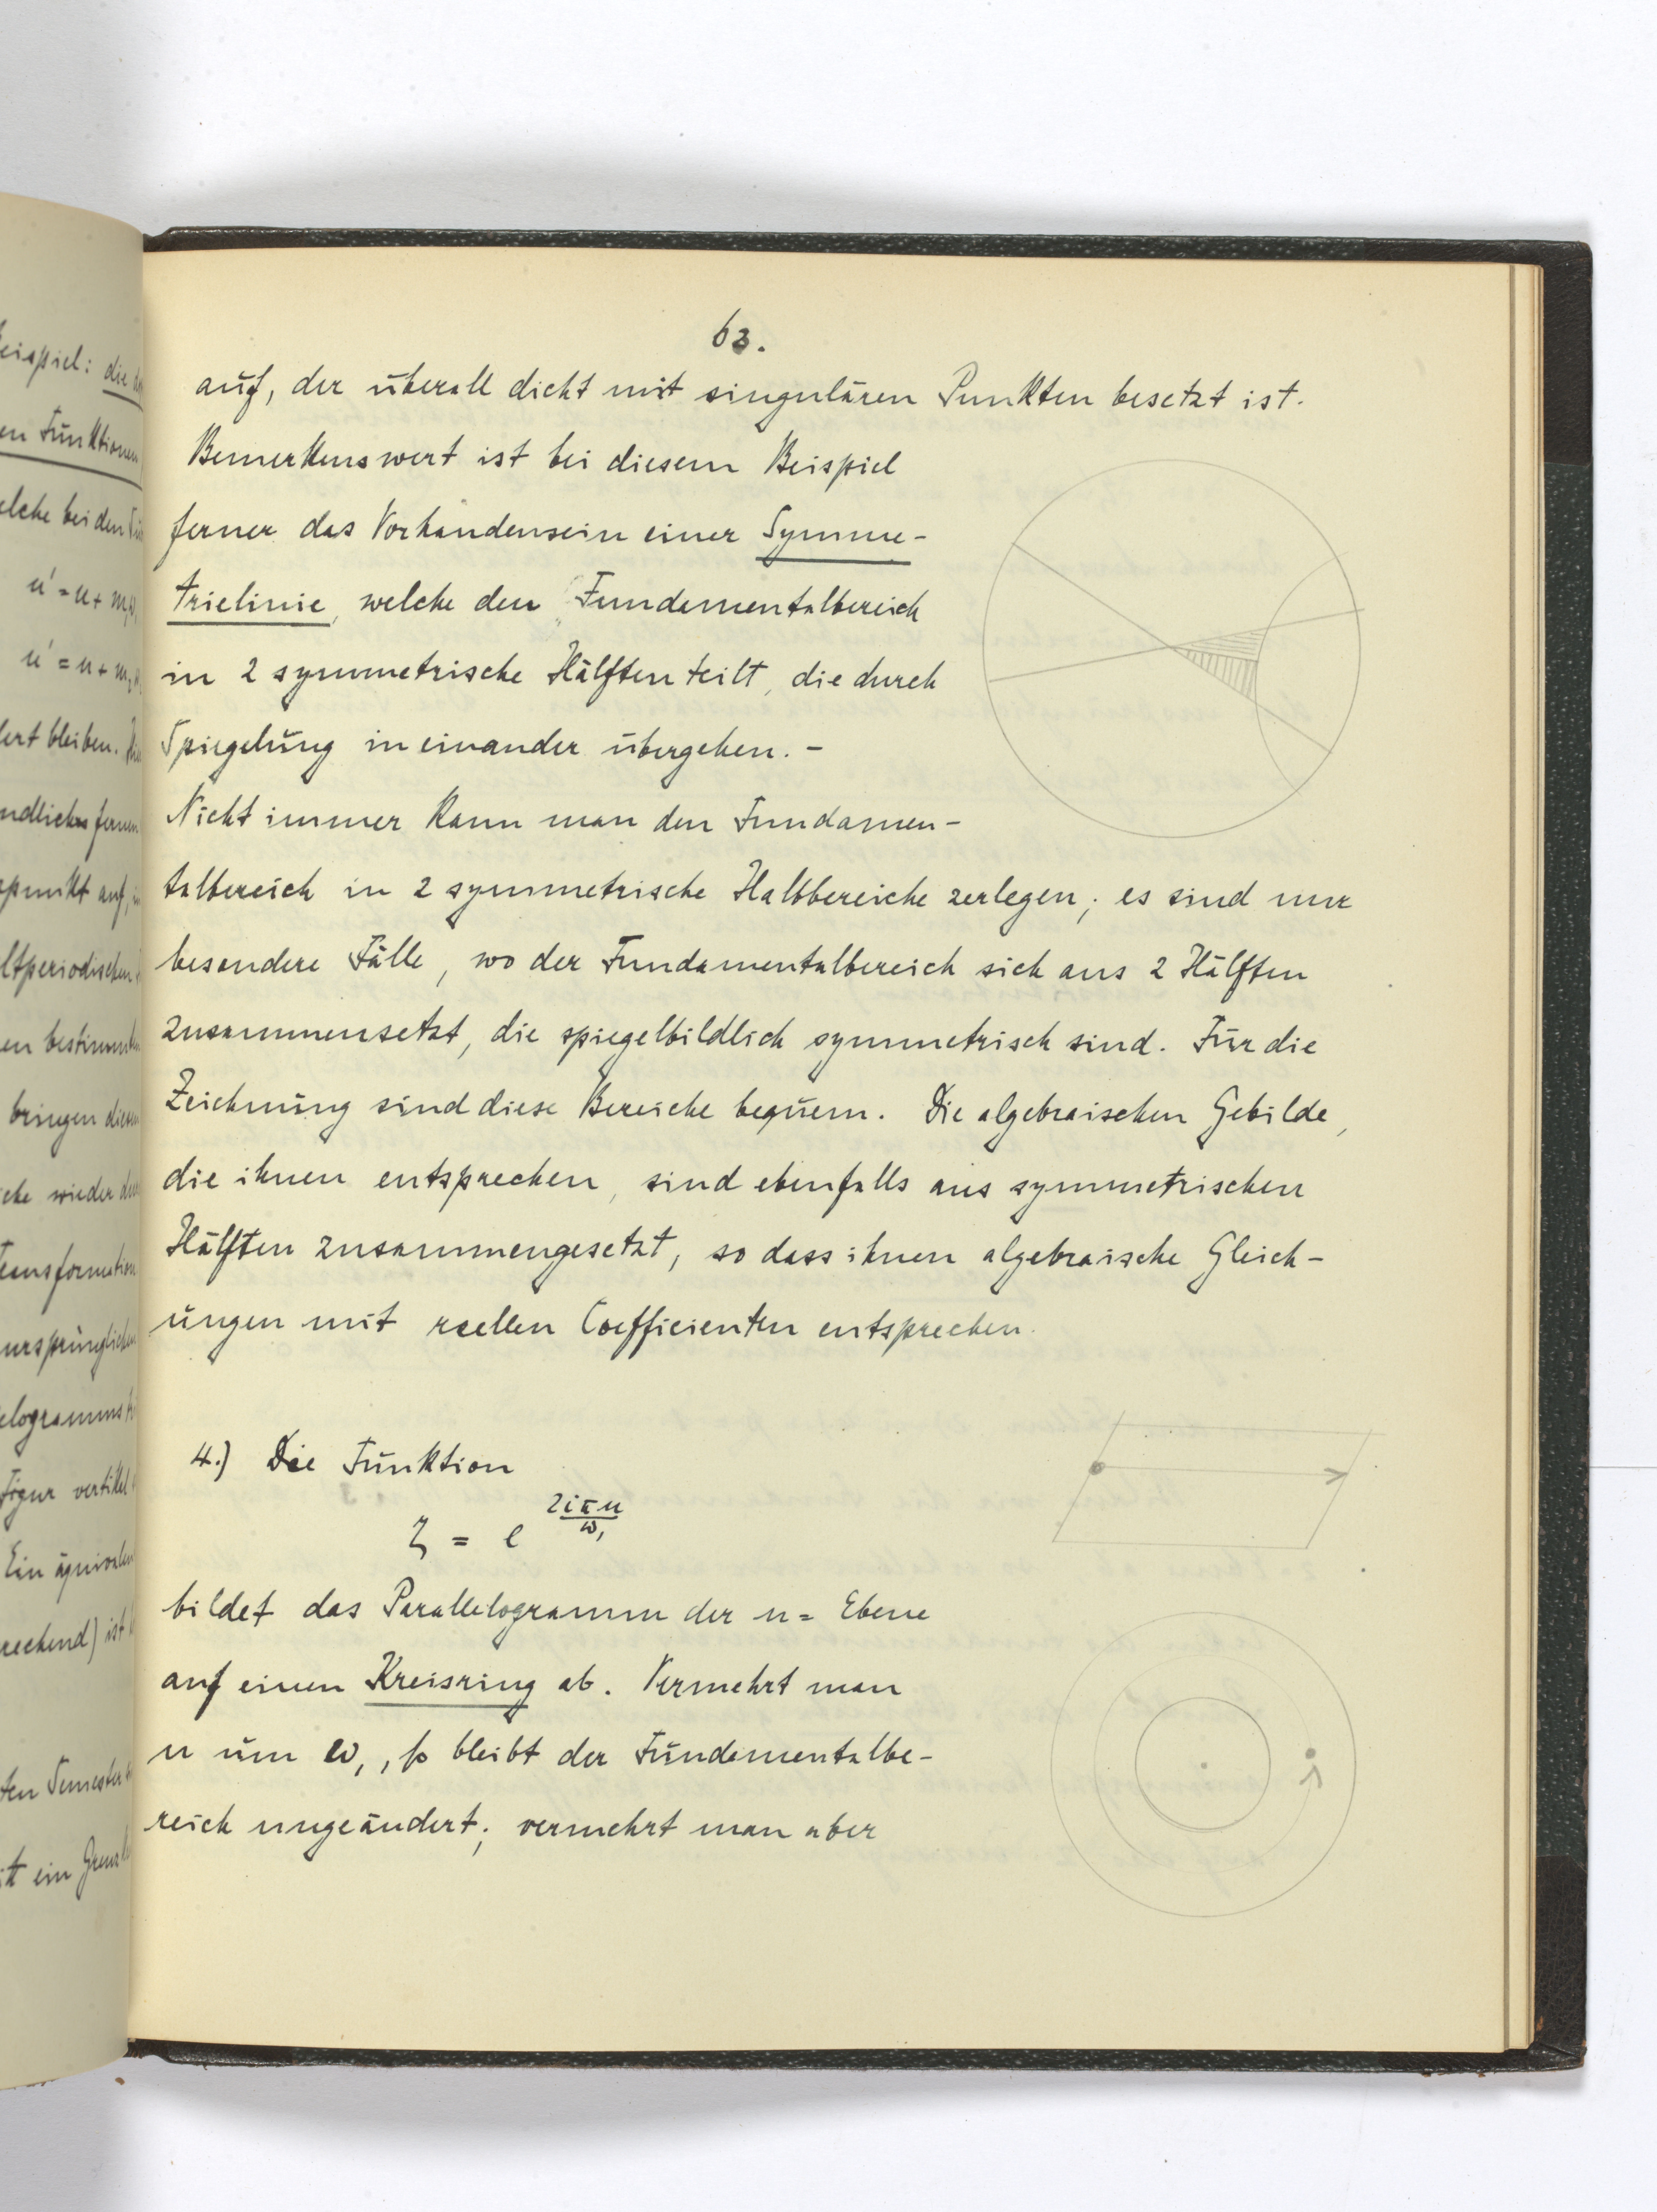 63.
auf, der überall dicht mit singulären Punkten besetzt ist.
Bemerkenswert ist bei diesem Beispiel
ferner das Vorhandensein einer Symme-
trielinie, welche den Fundamentalbereich
in 2 symmetrische Hälften teilt, die durch
Spiegelung in einander übergehen. -
Nicht immer kann man den Fundamen-
talbereich in 2 symmetrische Halbbereiche zerlegen; es sind nur
besondere Fälle, wo der Fundamentalbereich sich aus 2 Hälften
zusammensetzt, die spiegelbildlich symmetrisch sind. Für die
Zeichnung sind diese Bereiche bequem. Die algebraischen Gebilde,
die ihnen entsprechen, sind ebenfalls aus symmetrischen
Hälften zusammengesetzt, so dass ihnen algebraische Gleich-
ungen mit reellen Coefficienten entsprechen.
4.) Die Funktion
ζ = e^{2iπu/ω₁}
bildet das Parallelogramm der u= Ebene
auf einen Kreisring ab. Vermehrt man
u um ω₁, so bleibt der Fundamentalbe-
reich ungeändert; vermehrt man aber
eispiel: die
en Funktionen
elche bei den
u' = u + m
u' = u + m
ert bleiben.
ndlich fernen
punkt auf,
ltperiodischen
en bestimmten
bringen diesen
che wieder
ransformation
ursprünglichen
elogramms
Figur vertikal
Ein äquivalen
rechend) ist
ten Semester
tt ein Grenz